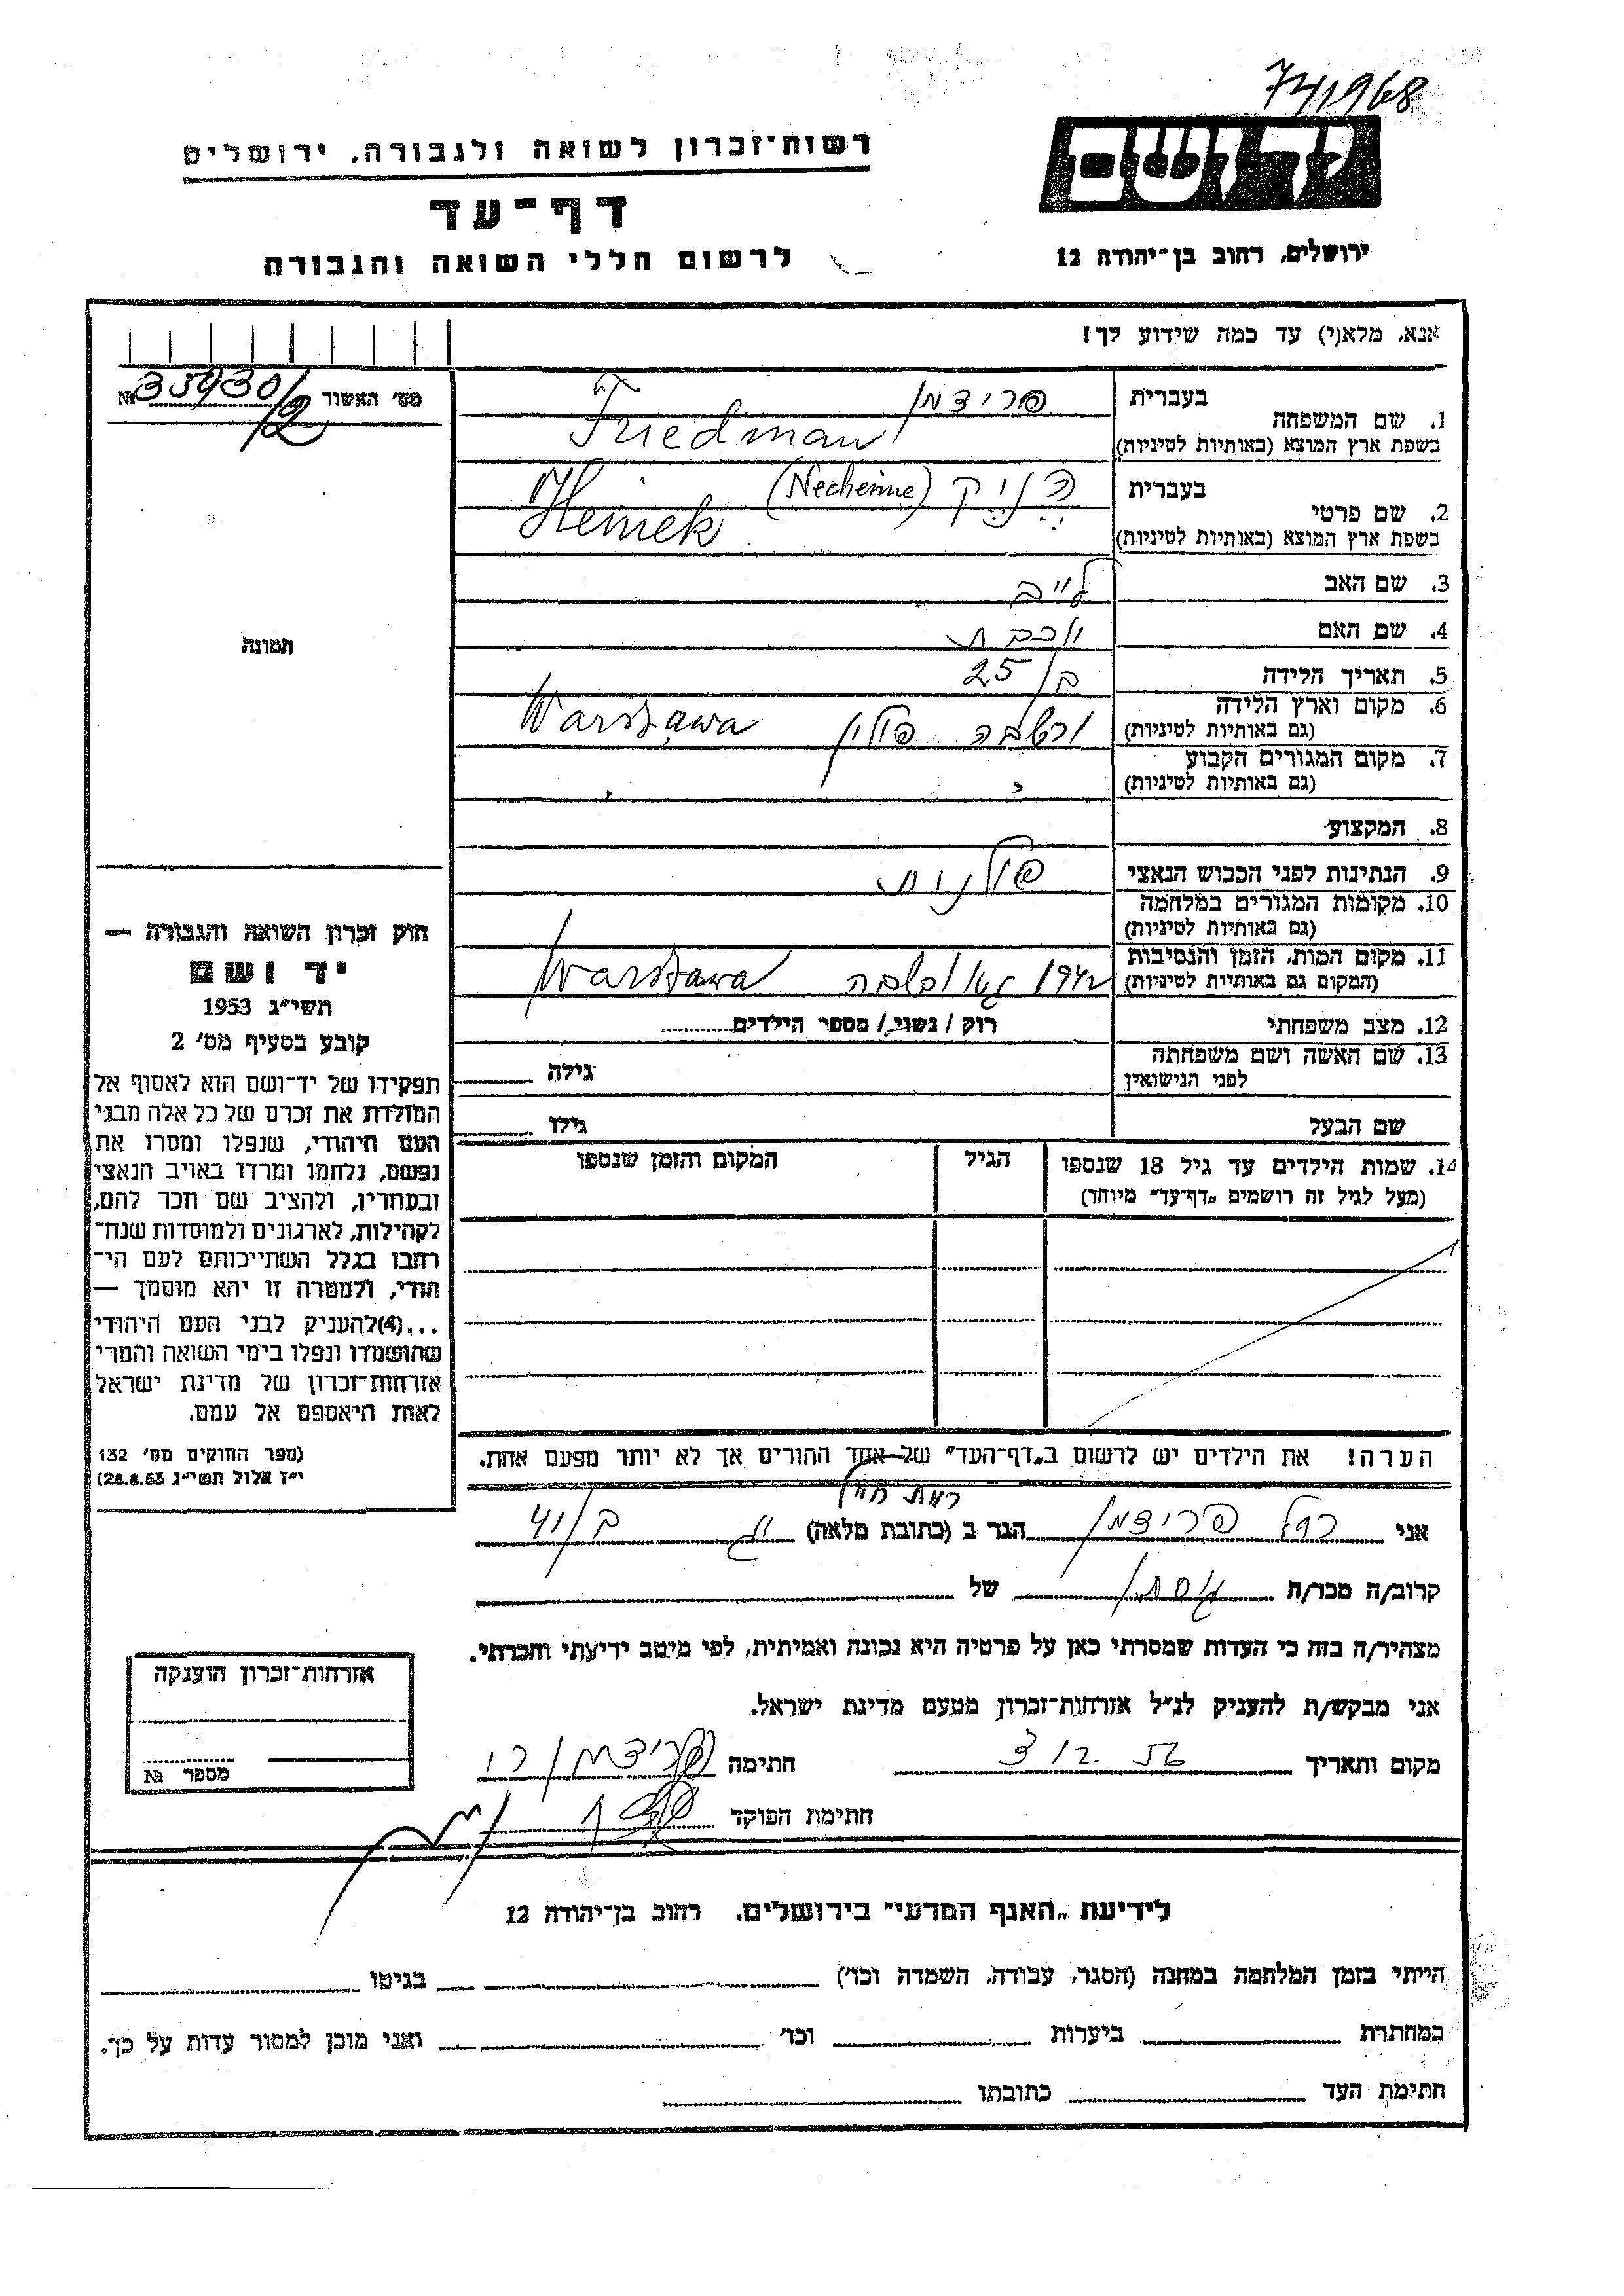 74/1968
יד ושם
רשות־זכרון לשואה ולגבורה, ירושלים
דף־עד
לרשום חללי השואה והגבורה
ירושלים, רחוב בן־יהודה 12
אנא, מלא(י) עד כמה שידוע לך!
מס׳ האשור № 35930/2
1. שם המשפחה
בעברית פרידמן
בשפת ארץ המוצא (באותיות לטיניות) Friedman
2. שם פרטי
בעברית הֶנֶיק (Nechemie)
בשפת ארץ המוצא (באותיות לטיניות) Heniek
3. שם האב לייב
4. שם האם יוכבת
5. תאריך הלידה ב/25
6. מקום וארץ הלידה
(גם באותיות לטיניות) ורשבה פולין Warszawa
7. מקום המגורים הקבוע
(גם באותיות לטיניות)
8. המקצוע
9. הנתינות לפני הכבוש הנאצי פולנית
10. מקומות המגורים במלחמה
(גם באותיות לטיניות)
11. מקום המות, הזמן והנסיבות
(המקום גם באותיות לטיניות) 1942 Warszawa
12. מצב משפחתי רוק / נשוי / מספר הילדים
13. שם האשה ושם משפחתה
לפני הנישואין גילה
שם הבעל גילו
14. שמות הילדים עד גיל 18 שנספו
(מעל לגיל זה רושמים „דף־עד״ מיוחד)
הגיל
המקום והזמן שנספו
הערה! את הילדים יש לרשום ב„דף־העד״ של אחד ההורים אך לא יותר מפעם אחת.
תמונה
חוק זכרון השואה והגבורה —
יד ושם
תשי״ג 1953
קובע בסעיף מס׳ 2
תפקידו של יד־ושם הוא לאסוף אל
המולדת את זכרם של כל אלה מבני
העם היהודי, שנפלו ומסרו את
נפשם, נלחמו ומרדו באויב הנאצי
ובעוזריו, ולהציב שם וזכר להם,
לקהילות, לארגונים ולמוסדות שנח־
רבו בגלל השתייכותם לעם הי־
הודי, ולמטרה זו יהא מוסמך —
...(4)להעניק לבני העם היהודי
שהושמדו ונפלו בימי השואה והמרי
אזרחות־זכרון של מדינת ישראל
לאות היאספם אל עמם.
(ספר החוקים מס׳ 132
י״ז אלול תשי״ג 28.8.53)
אני פרידמן הגר ב (כתובת מלאה) ב/41
קרוב/ה מכר/ה של
מצהיר/ה בזה כי העדות שמסרתי כאן על פרטיה היא נכונה ואמיתית, לפי מיטב ידיעתי והכרתי.
אני מבקש/ת להעניק לנ״ל אזרחות־זכרון מטעם מדינת ישראל.
מקום ותאריך חתימה
חתימת הפוקד
אזרחות־זכרון הוענקה
מספר №
לידיעת „האגף המדעי״ בירושלים, רחוב בן־יהודה 12
הייתי בזמן המלחמה במחנה (הסגר, עבודה, השמדה וכו׳) בגיטו
במחתרת ביערות וכו׳ ואני מוכן למסור עדות על כך.
חתימת העד כתובתו